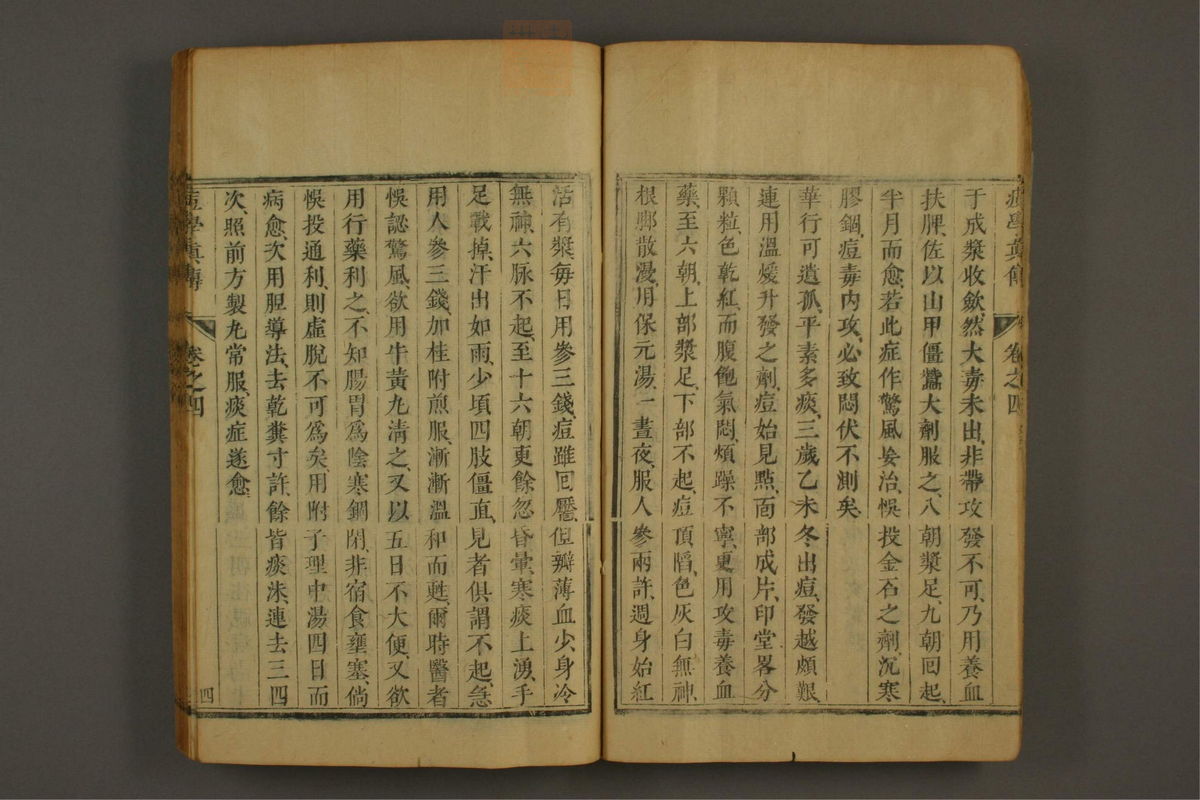 痘學眞傳
卷之四
于成漿收歛然大毒未出非帶攻發不可乃用養血
扶脾佐以山甲僵蠶大劑服之八朝漿足九朝囘起
半月而愈若此症作驚風妄治悞投金石之劑沉寒
膠錮痘毒内攻必致悶伏不測矣
華行可遺孤平素多痰三歲乙未冬出痘發越頗艱
連用溫煖升發之劑痘始見點面部成片印堂畧分
顆粒色乾紅而腹飽氣悶煩躁不寧更用攻毒養血
藥至六朝上部漿足下部不起痘頂䧟色灰白無神
根脚散漫用保元湯一晝夜服人參兩許週身始紅
活有漿每日用參三錢痘雖囘靨但瓣薄血少身冷
無神六脉不起至十六朝更餘忽昏暈寒痰上湧手
足戰掉汗出如雨少頃四肢僵直見者俱謂不起急
用人參三錢加桂附煎服漸漸溫和而甦爾時醫者
悞認驚風欲用牛黃丸清之又以五日不大便又欲
用行藥利之不知腸胃爲陰寒錮閉非宿食壅塞倘
悞投通利則虛脫不可爲矣用附子理中湯四日而
病愈次用胆導法去乾糞寸許餘皆痰沫連去三四
次照前方製丸常服痰症遂愈
痘學眞傳
卷之四
四